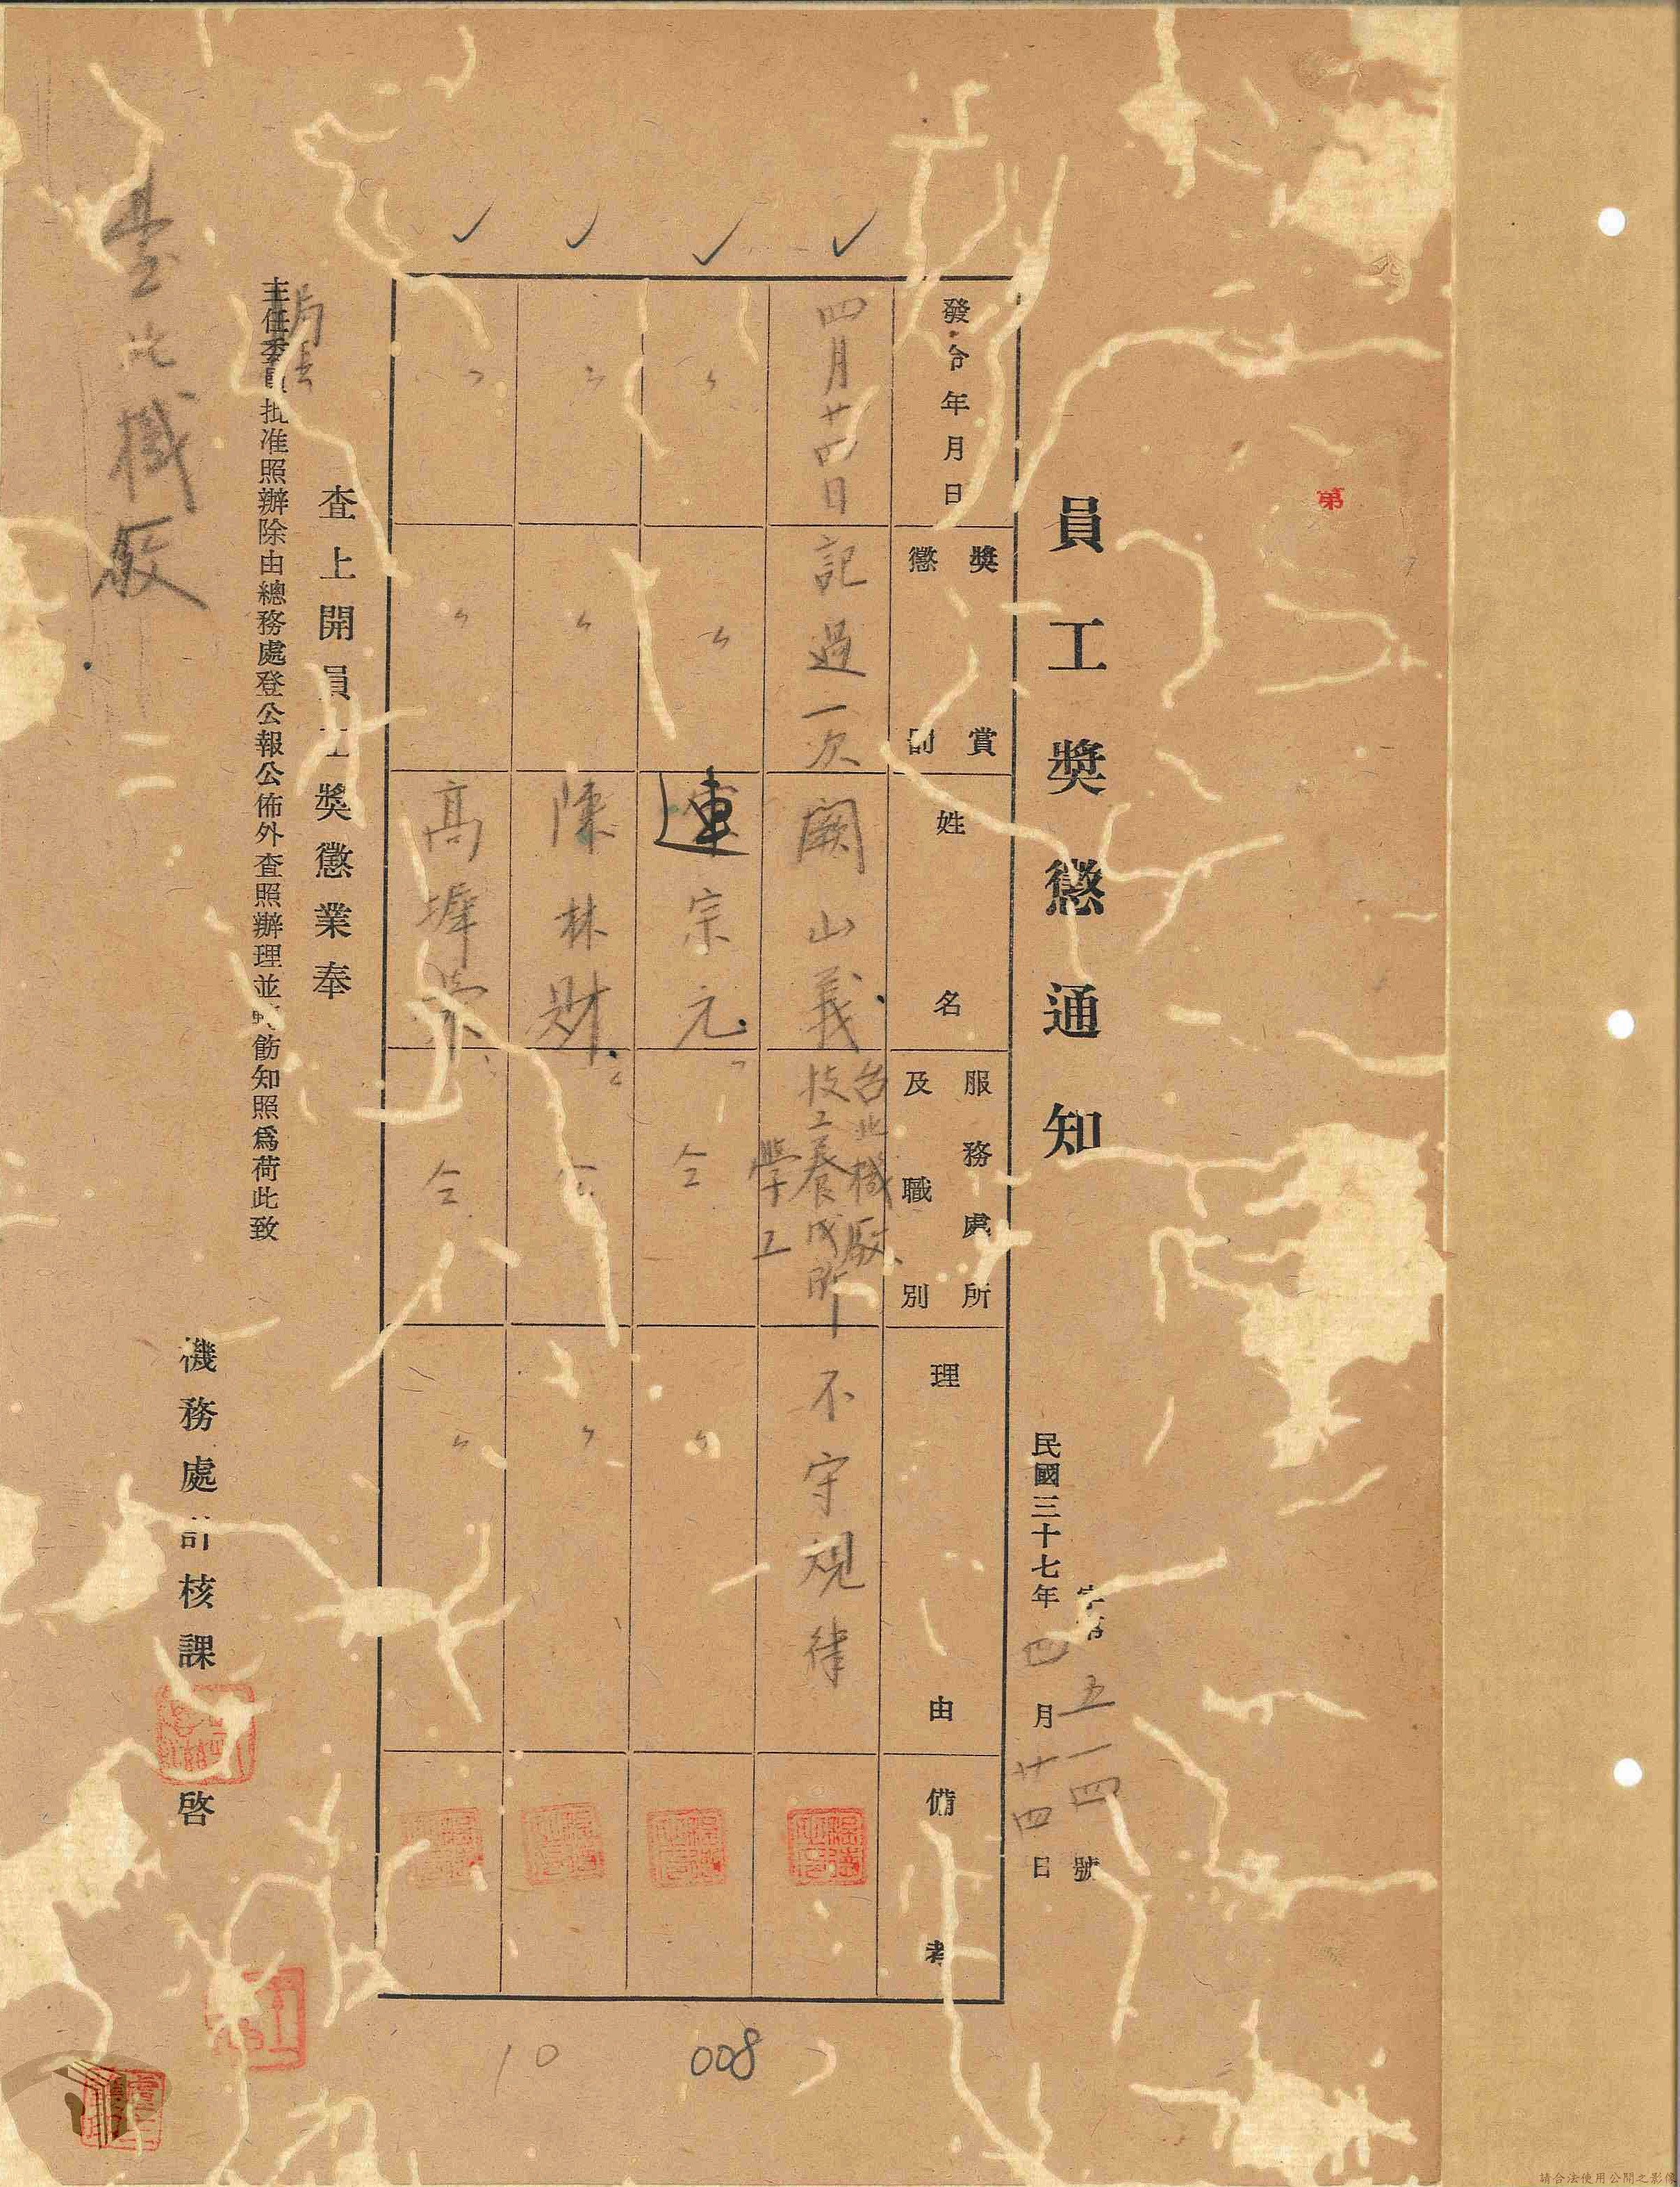 第
員工獎懲通知
五一四 號
民國三十七年四月廿四日
發令年月日
獎賞
懲罰
姓名
服務處所
及職別
理由
備考
四月廿四日
記過一次
闕山義
台北機廠
技工養成所
學工
不守規律
〃
〃
連宗元
仝
〃
〃
〃
陳林財
仝
〃
〃
〃
高墀榮
仝
〃
查上開員工獎懲業奉
局長
主任委員批准照辦除由總務處登公報公佈外查照辦理並轉飭知照為荷此致
臺北機廠
機務處計核課
啓
10
008
請合法使用公開之影像